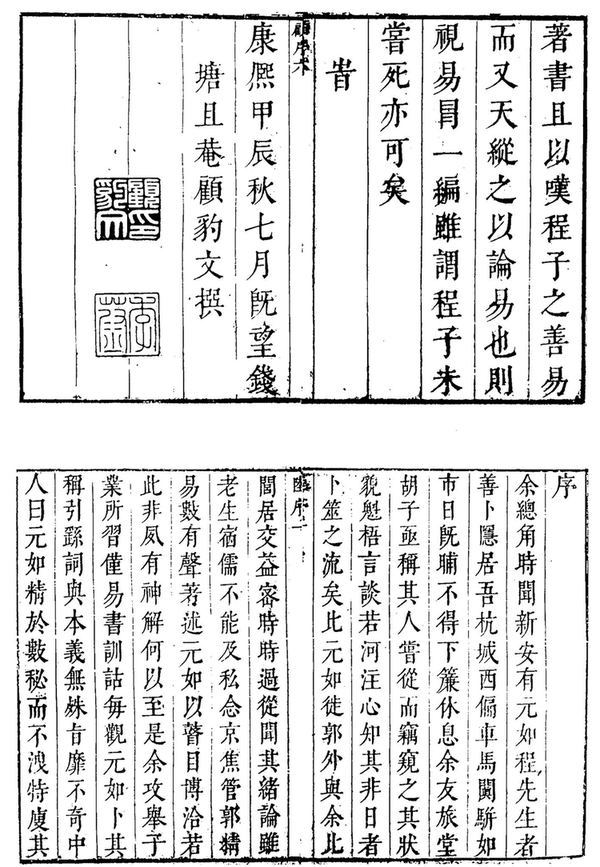 著書且以嘆程子之善易
而又天縱之以論易也則
視易冐一編雖謂程子未
嘗死亦可矣
旹
顧序六
康熙甲辰秋七月旣望錢
塘且菴顧豹文撰
序
余總角時聞新安有元如程先生者
善卜隱居吾杭城西偏車馬闐駢如
市日旣晡不得下簾休息余友旅堂
胡子亟稱其人嘗從而竊窺之其狀
貌魁梧言談若河注心知其非日者
卜筮之流矣比元如徙郭外與余比
序一
閭居交益密時時過從聞其緒論雖
老生宿儒不能及私念京焦管郭精
易數有聲著述元如以瞽目博洽若
此非夙有神解何以至是余攻舉子
業所習僅易書訓詁每觀元如卜其
稱引繇詞與本義無殊旨靡不奇中
人曰元如精於數秘而不洩特廋其